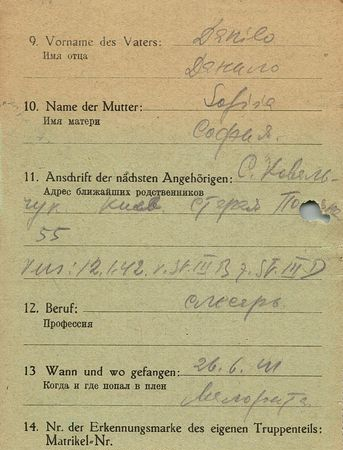 9. Vorname des Vaters: Danilo
Имя отца
Данило
10. Name der Mutter: Sofija
Имя матери
София.
11. Anschrift der nächsten Angehörigen: С. Коваль-
Адрес ближайших родственников
чук Киев старая
55
Vers: 12.1.42. v. St. III B z. St. III D
12. Beruf: слесарь
Профессия
13 Wann und wo gefangen: 26.6.41
Когда и где попал в плен
Малорита
14. Nr. der Erkennungsmarke des eigenen Truppenteils:
Matrikel-Nr.